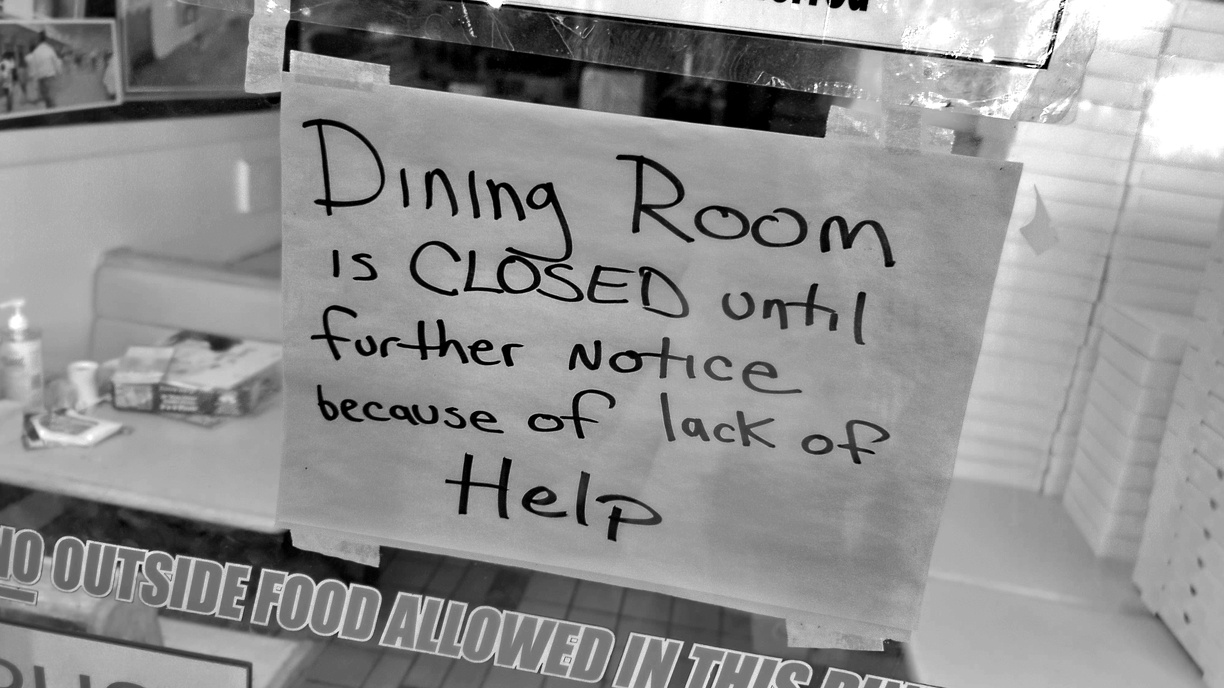 Dining Room
is CLOSED until
further Notice
because of lack of
Help
NO OUTSIDE FOOD ALLOWED IN THIS